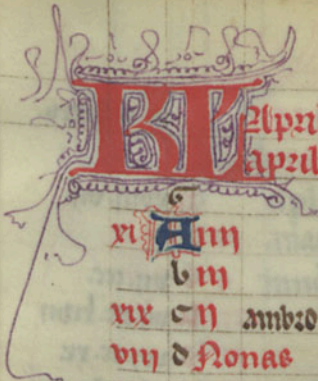 KL Apri
april
g
xi A iiij
b iij
xix c ij ambro
viij d Nonas